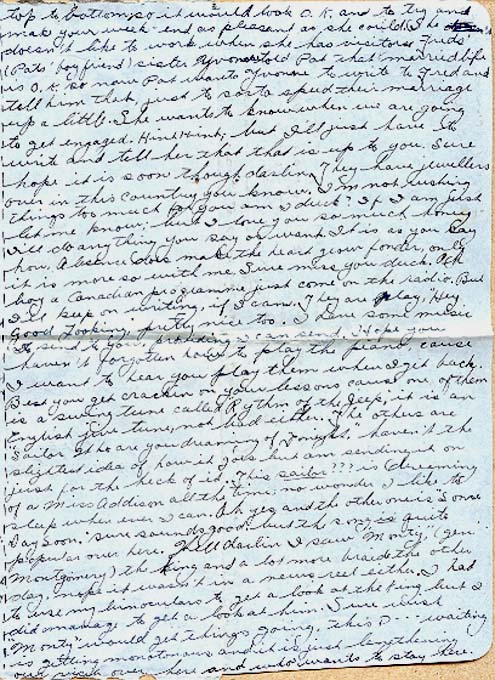 top to bottom, so it would look O.K. and to try and
make your week-end as pleasant as she could. She
doesn't like to work when she has visitors. Freds'
(Pats' boy friend) sister Yvonne told Pat that married life
is O.K. so now Pat wants Yvonne to write to Fred and
tell him that, just to sorta speed their marriage
up a little. She wants to know when we are going
to get engaged. Hint Hint, but I'll just have to
write and tell her that that is up to you. Sure
hope it is soon though darlin. They have jewellers
over in this country you know. I'm not rushing
things too much for you am I duck? If I am just
let me know; but I love you so much honey
I'll do anything you say or want. It is as you say
hon. Absence does make the heart grow fonder, only
it is more so with me. Sure miss you duck. Oh
boy a Canadian programme just come on the radio. But
I'll keep on writing, if I can. They are play, Hey
Good Looking, pretty nice too. I have some music
to send to you, providing I can send. Hope you
haven't forgotten how to play the piano, cause
I want to hear you play them when I get back.
Best you get crackin on your lessons cause one of them
is a swing tune called Rythm of the Jeep, it is an
English jive tune, not bad either. The others are
"Sailor Who are you dreaming of Tonight" haven't the
slightest idea of how it goes but am sending it on
just for the heck of it. This sailor??? is dreaming
of a Miss Addison all the time, no wonder I like to
sleep when ever I can. Oh yes and the other one is Some
Day Soon. Sure sounds good but the song is quite
popular over here. Well darlin I saw Monty, (Gen.
Montgomery) the King and a lot more braid the other
day, nope it wasn't in a news reel either. I had
to use my binoculars to get a look at them but I
did manage to get a look at him. Sure wish
Monty would get things going, this D--- waiting
is getting monotonous and it is just lengthening
our visit over here and who wants to stay here.